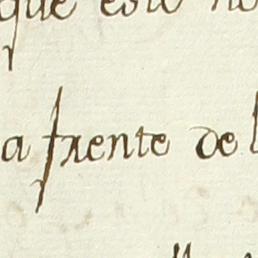 que este no
a frente de l